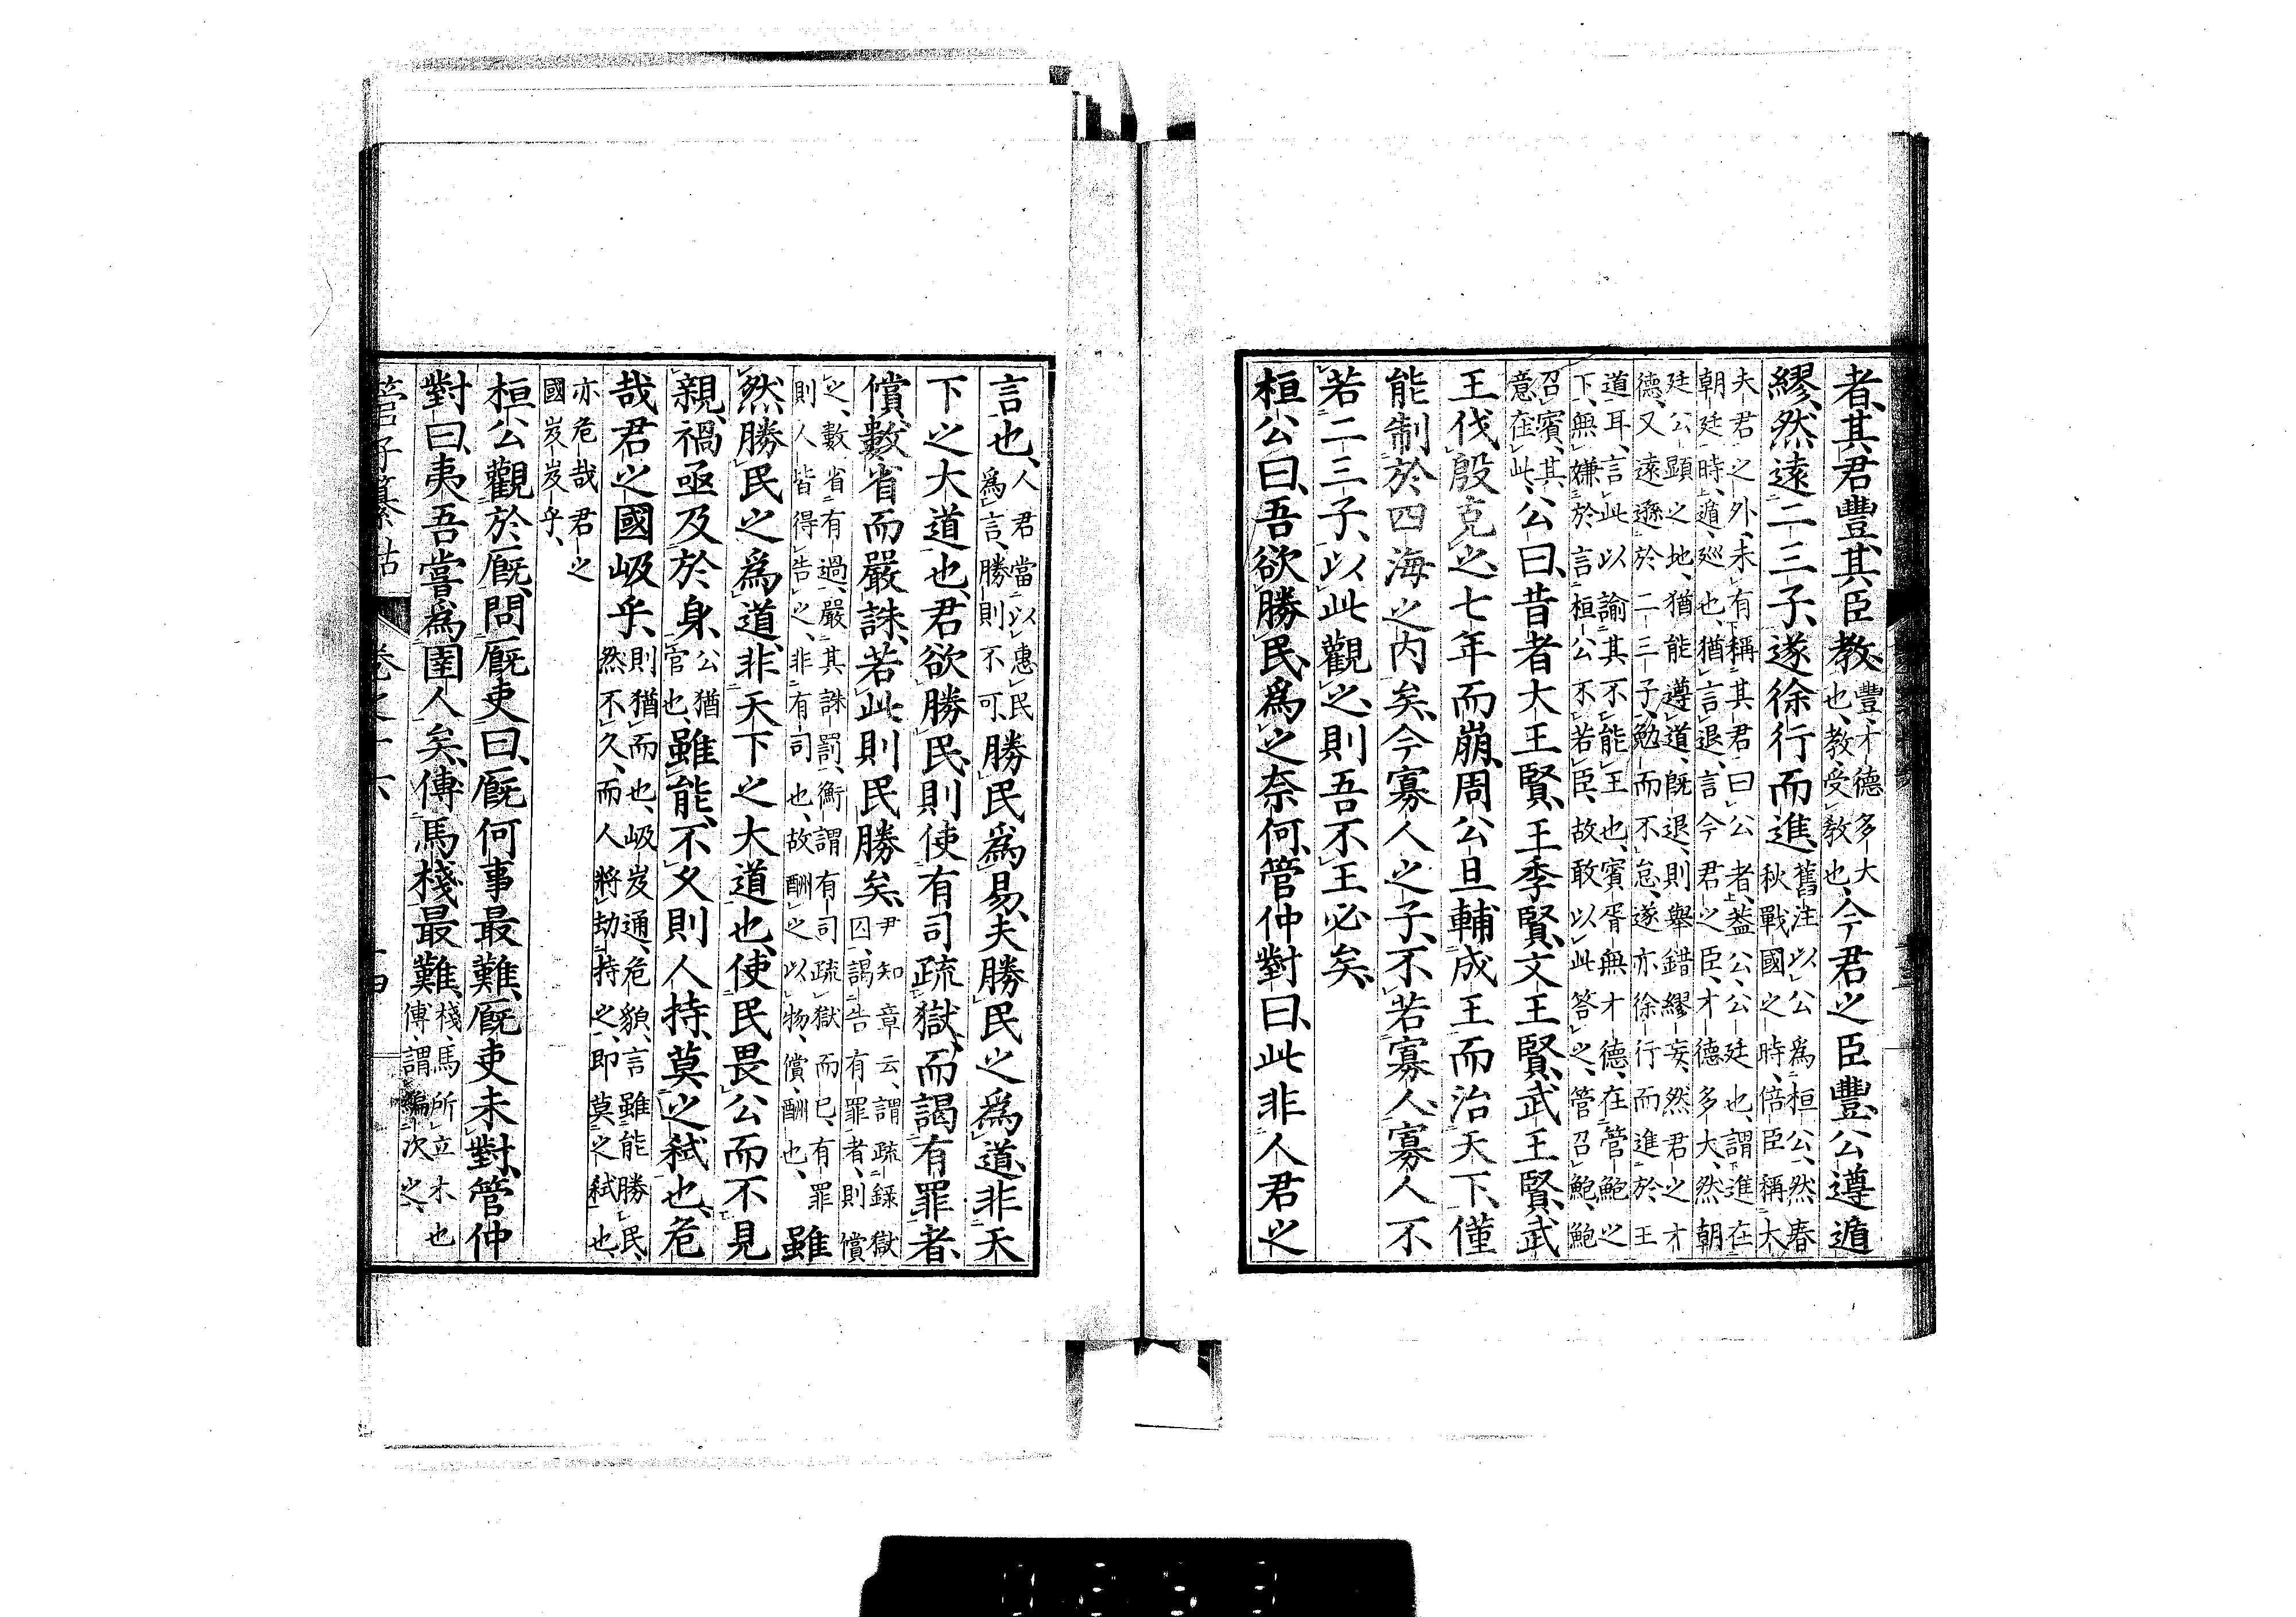 者、其君豐、其臣教、豐才德多大也、教、受教也、今君之臣豐、公遵遁
繆然遠二三子、遂徐行而進、舊注以公爲桓公、然春秋戰國之時、倍臣稱大
夫君之外、未有稱其君曰公者、蓋公、公廷也、謂進在
朝廷時、遁、巡也、猶言退、言今君之臣、才德多大、然朝
廷公顯之地、猶能遵道、旣退、則舉錯繆妄、然君之才
德、又遠遜於二三子、勉而不怠、遂亦徐行而進於王
道耳、言此以諭其不能王也、賓胥無才德、在管鮑之
下、無嫌於言桓公不若臣、故敢以此答之、管召鮑、鮑
召賓、其意在此、公曰、昔者大王賢、王季賢、文王賢、武王賢、武
王伐殷克之、七年而崩、周公旦輔成王而治天下、僅
能制於四海之內矣、今寡人之子、不若寡人、寡人不
若二三子、以此觀之、則吾不王必矣、
桓公曰、吾欲勝民、爲之奈何、管仲對曰、此非人君之
言也、人君當以惠民爲言、勝則不可、勝民爲易、夫勝民之爲道、非天
下之大道也、君欲勝民、則使有司疏獄、而謁有罪者、
償、數省而嚴誅、若此、則民勝矣、尹知章云、謂疏錄獄囚、謁告有罪者、則償
之、數省有過、嚴其誅罰、衡謂有司疏獄而已、有罪
則人皆得告之、非有司也、故酬之以物、償、酬也、雖
然、勝民之爲道、非天下之大道也、使民畏公而不見
親、禍亟及於身、公猶官也、雖能、不久則人持、莫之弑也、危
哉君之國岋乎、則猶而也、岋岌通、危貌、言雖能勝民、然不久、而人將劫持之、即莫之弑也、
亦危哉君之
國岌岌乎、
桓公觀於廐、問廐吏曰、廐何事最難、廐吏未對、管仲
對曰、夷吾嘗爲圉人矣、傅馬棧最難、棧、馬所立木也傅、謂編次之、
管子纂詁 卷之十六